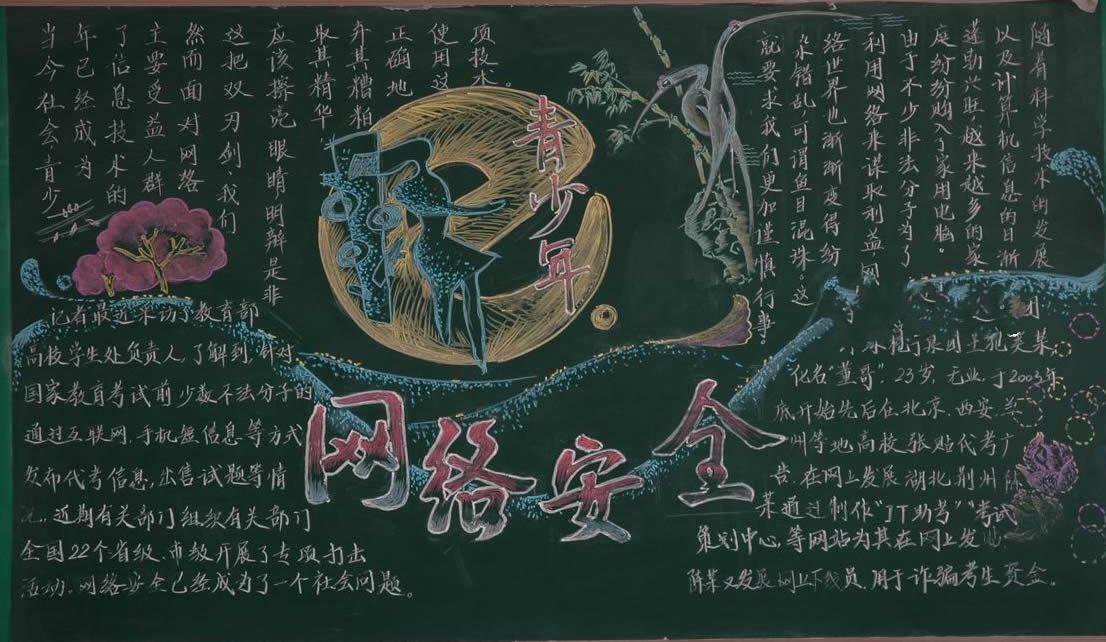 当今社会青少
年已经成为
了信息技术的
主要受益人群
然而面对网络
这把双刃剑,我们
应该擦亮眼睛明辩是非
取其精华
弃其糟粕
正确地
使用这
项技术。
青少年
随着科学技术的发展
以及计算机信息的日渐
蓬勃兴旺,越来越多的家
庭纷纷购入了家用电脑。
由于不少非法分子为了
利用网络来谋取利益,网
络世界也渐渐变得纷
杂错乱,可谓鱼目混珠。这
就要求我们更加谨慎行事。
网络安全
记者最近采访了教育部
高校学生处负责人,了解到,针对
国家教育考试前少数不法分子的
通过互联网、手机短信息等方式
发布代考信息,出售试题等情
近期有关部门组织有关部门
全国22个省级、市级开展了专项打击
活动。网络安全已经成为了一个社会问题。
团主犯吴某,
化名"董哥",23岁,无业,于2003年
底开始先后在北京、西安、兰
州等地高校张贴代考广
告,在网上发展湖北荆州陈
某通过制作"JT助考""考试
策划中心"等网站为其在网上发
陈某又发展网上下线员,用于诈骗考生资金。